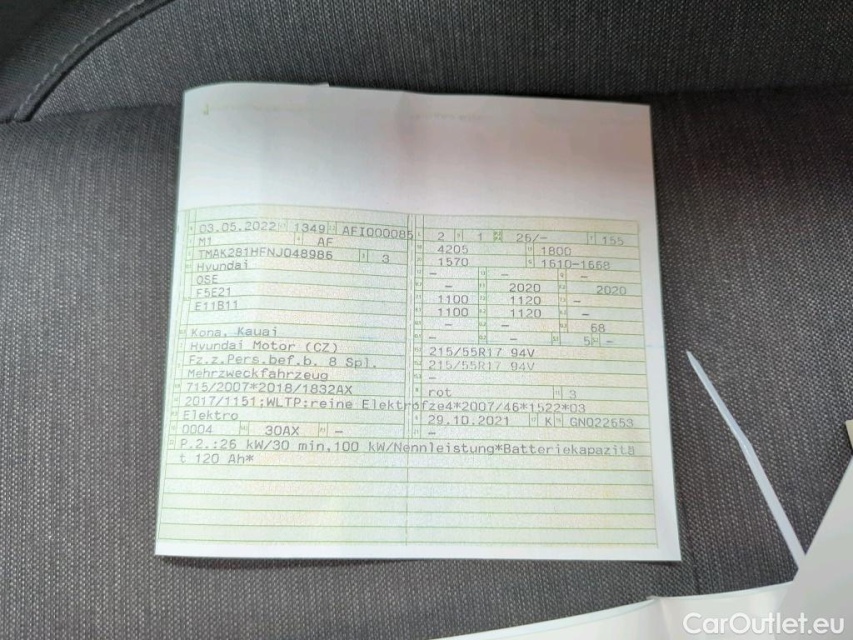 03.05.2022 1349 AFI000085 2 1 26/- 155
M1 AF 4205 1800
TMAK281HFNJ048986 3 1570 1610-1668
Hyundai - - -
OSE - 2020 2020
F5E21 1100 1120 -
E11B11 1100 1120 -
- - 68
Kona, Kauai - - 5 -
Hyundai Motor (CZ) 215/55R17 94V
Fz.z.Pers.bef.b. 8 Spl. 215/55R17 94V
Mehrzweckfahrzeug -
715/2007*2018/1832AX rot 3
2017/1151;WLTP;reine Elektrofze4*2007/46*1522*03
Elektro 29.10.2021 K GN022653
0004 30AX - -
P.2.:26 kW/30 min,100 kW/Nennleistung*Batteriekapazitä
t 120 Ah*
CarOutlet.eu